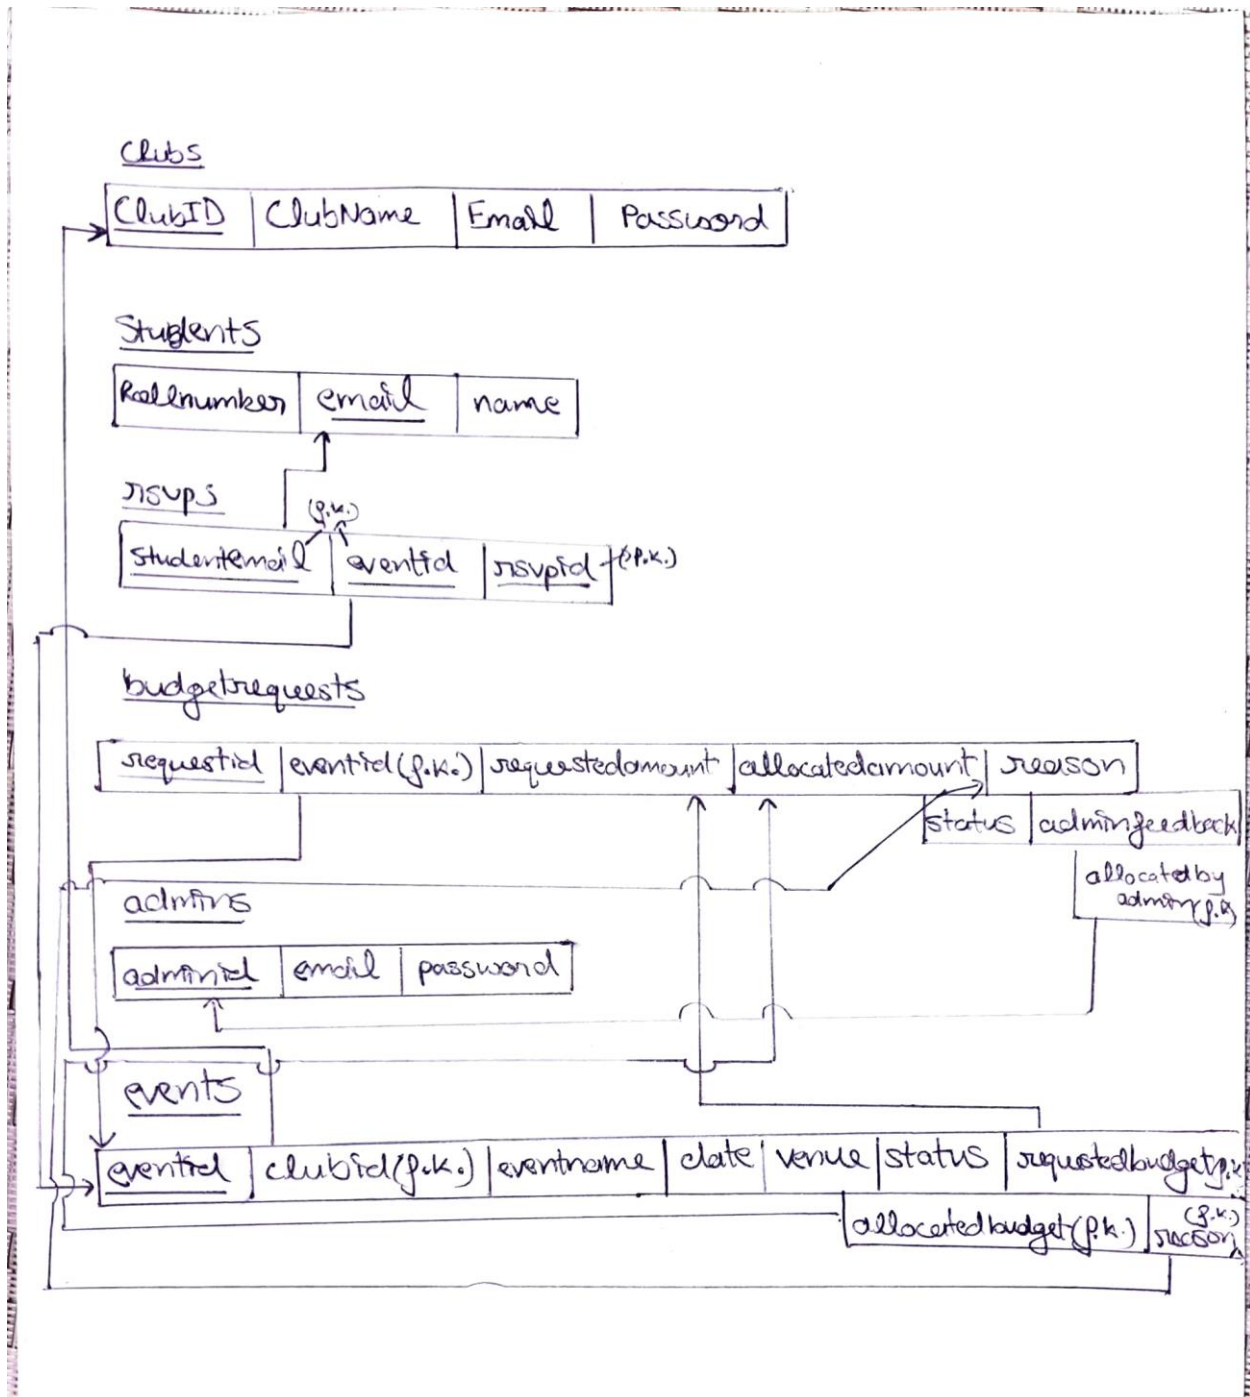 Clubs
ClubID ClubName Email Password
Students
Rollnumber email name
rsvps
(f.k.)
studentemail eventid rsvpid (p.k.)
budgetrequests
requestid eventid(f.k.) requestedamount allocatedamount reason
status adminfeedback
allocatedby
admin(f.k)
admins
adminid email password
events
eventid clubid(f.k.) eventname date venue status requestedbudget(f.k
allocatedbudget(f.k.) (f.k.)
reason